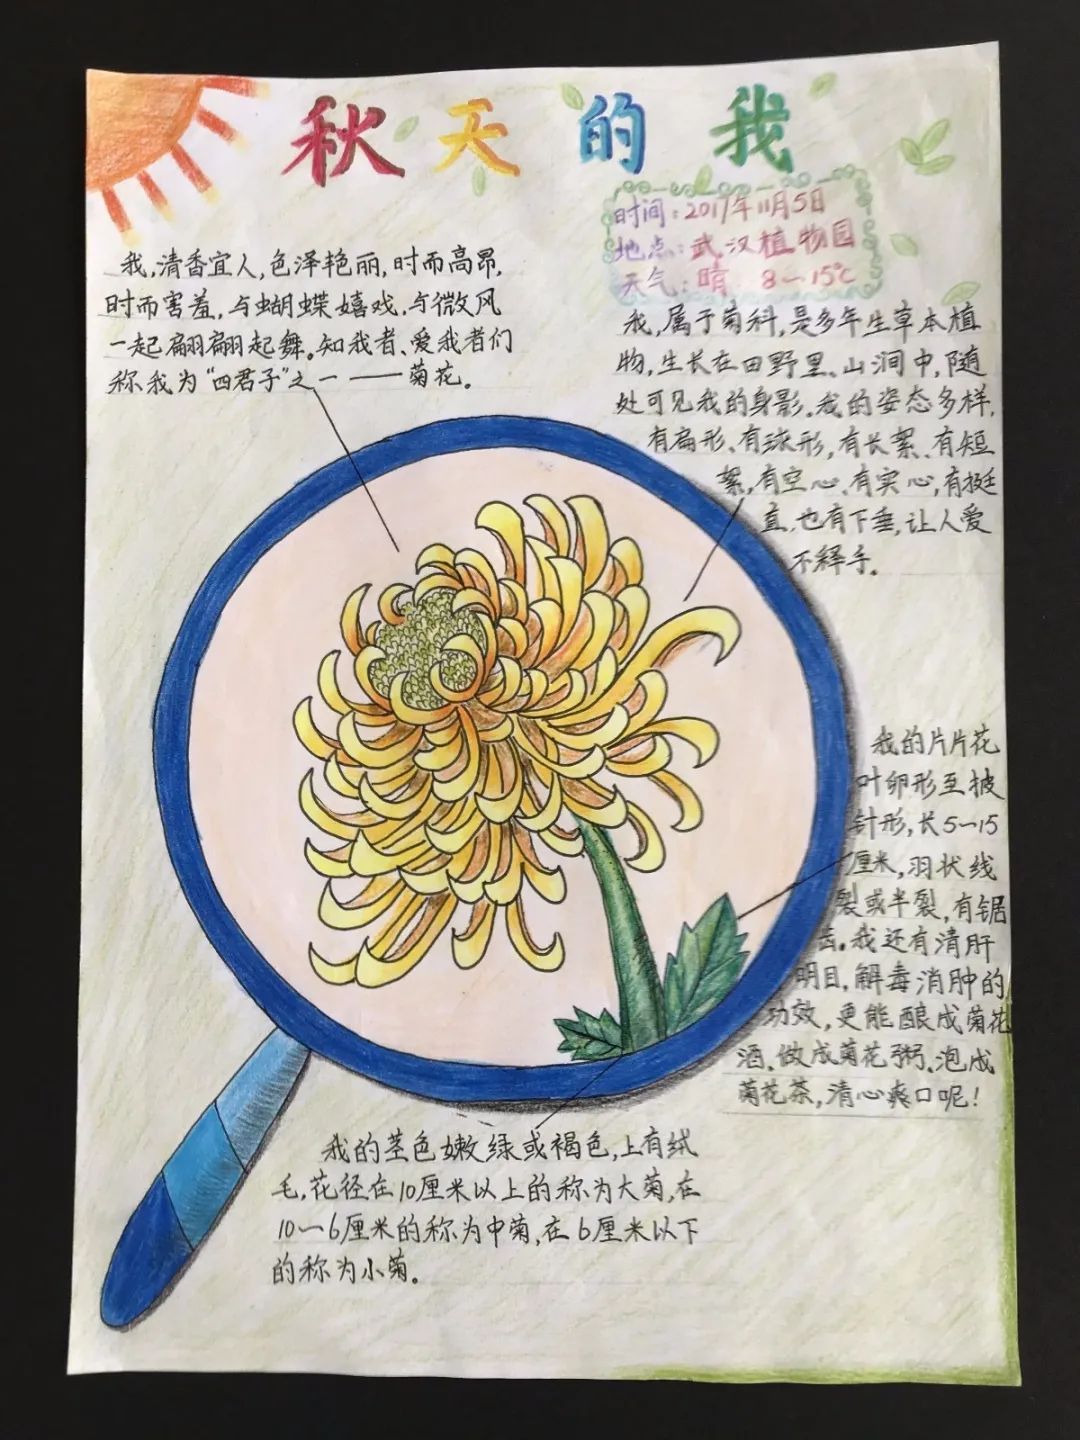 秋天的我
时间:2017年11月5日
地点:武汉植物园
天气:晴 8—15℃
我,清香宜人,色泽艳丽,时而高昂,
时而害羞,与蝴蝶嬉戏,与微风
一起翩翩起舞。知我者、爱我者们
称我为“四君子”之一——菊花。
我,属于菊科,是多年生草本植
物,生长在田野里、山涧中,随
处可见我的身影。我的姿态多样,
有扁形、有球形,有长絮、有短
絮,有空心、有实心,有挺
直,也有下垂,让人爱
不释手。
我的片片花
叶卵形至披
针形,长5—15
厘米,羽状线
裂或半裂,有锯
齿。我还有清肝
明目,解毒消肿的
功效,更能酿成菊花
酒、做成菊花粥、泡成
菊花茶,清心爽口呢!
我的茎色嫩绿或褐色,上有绒
毛,花径在10厘米以上的称为大菊,在
10—6厘米的称为中菊,在6厘米以下
的称为小菊。